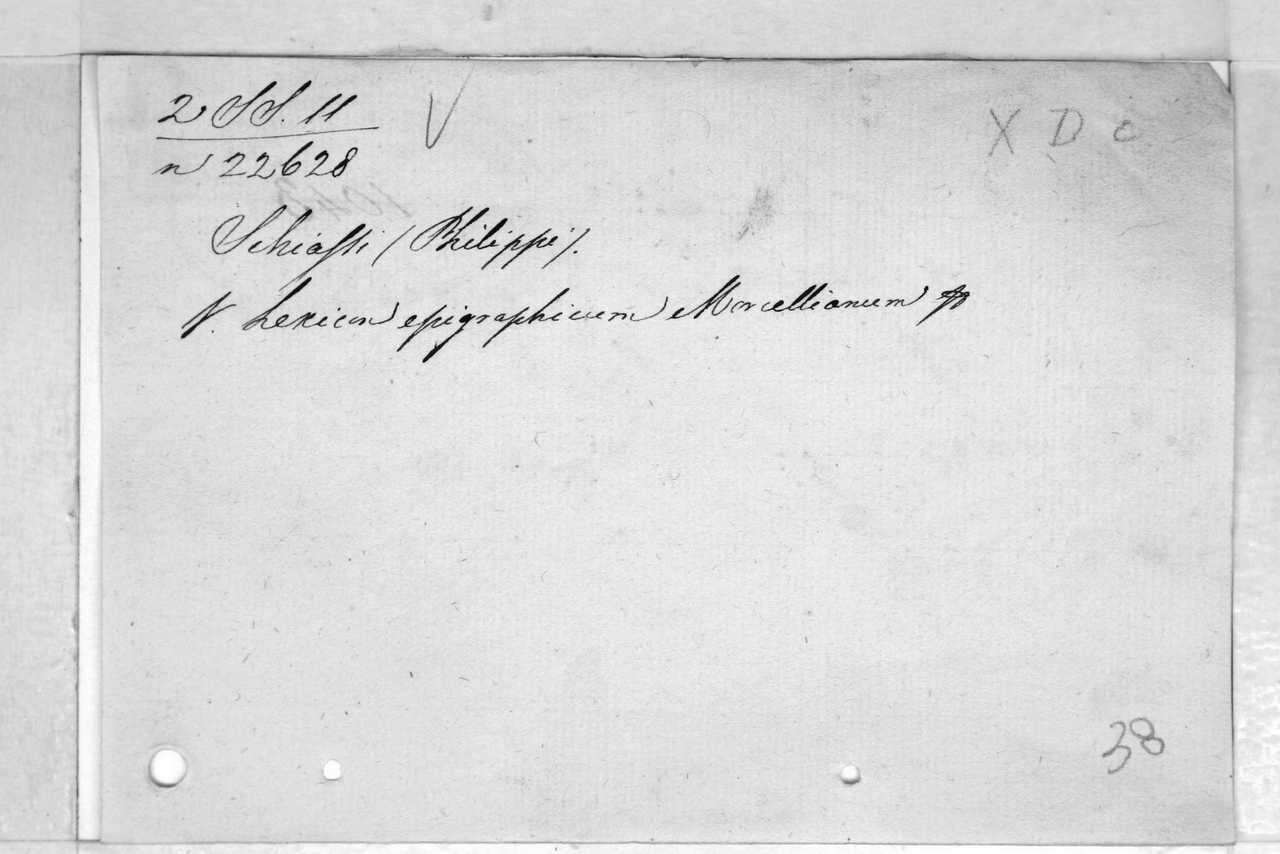 2 SS. 11
X D c
n 22628
Schiassi (Philippi).
V. Lexicon epigraphicum Morcellianum
38